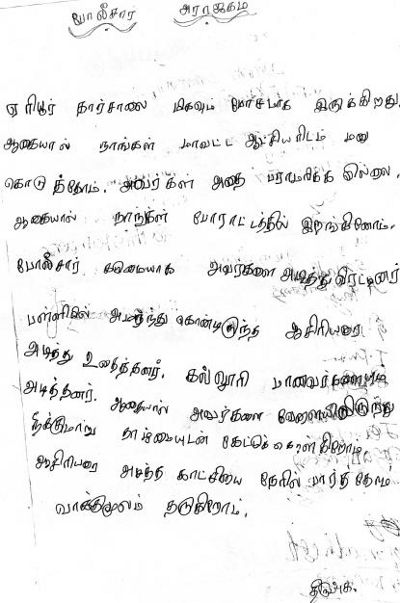 போலீசார் அராஜகம்
ஏரியூர் தார்சாலை மிகவும் மோசமாக இருக்கிறது.
ஆகையால் நாங்கள் மாவட்ட ஆட்சியரிடம் மனு
கொடுத்தோம். அவர்கள் அதை பராமரிக்க வில்லை.
ஆகையால் நாங்கள் போராட்டத்தில் இறங்கினோம்.
போலீசார் கடுமையாக அவர்களை அடித்து விரட்டினார்
பள்ளியில் அமர்ந்து கொண்டிருந்த ஆசிரியரை
அடித்து உதைத்தனர். கல்லூரி மாணவர்களையும்
அடித்தனர். ஆகையால் அவர்களை வேலையிலிருந்து
நீக்குமாறு தாழ்மையுடன் கேட்டுக்கொள்கிறோம்
ஆசிரியரை அடித்த காட்சியை நேரில் பார்த்தோம்
வாக்குமூலம் தருகிறோம்.